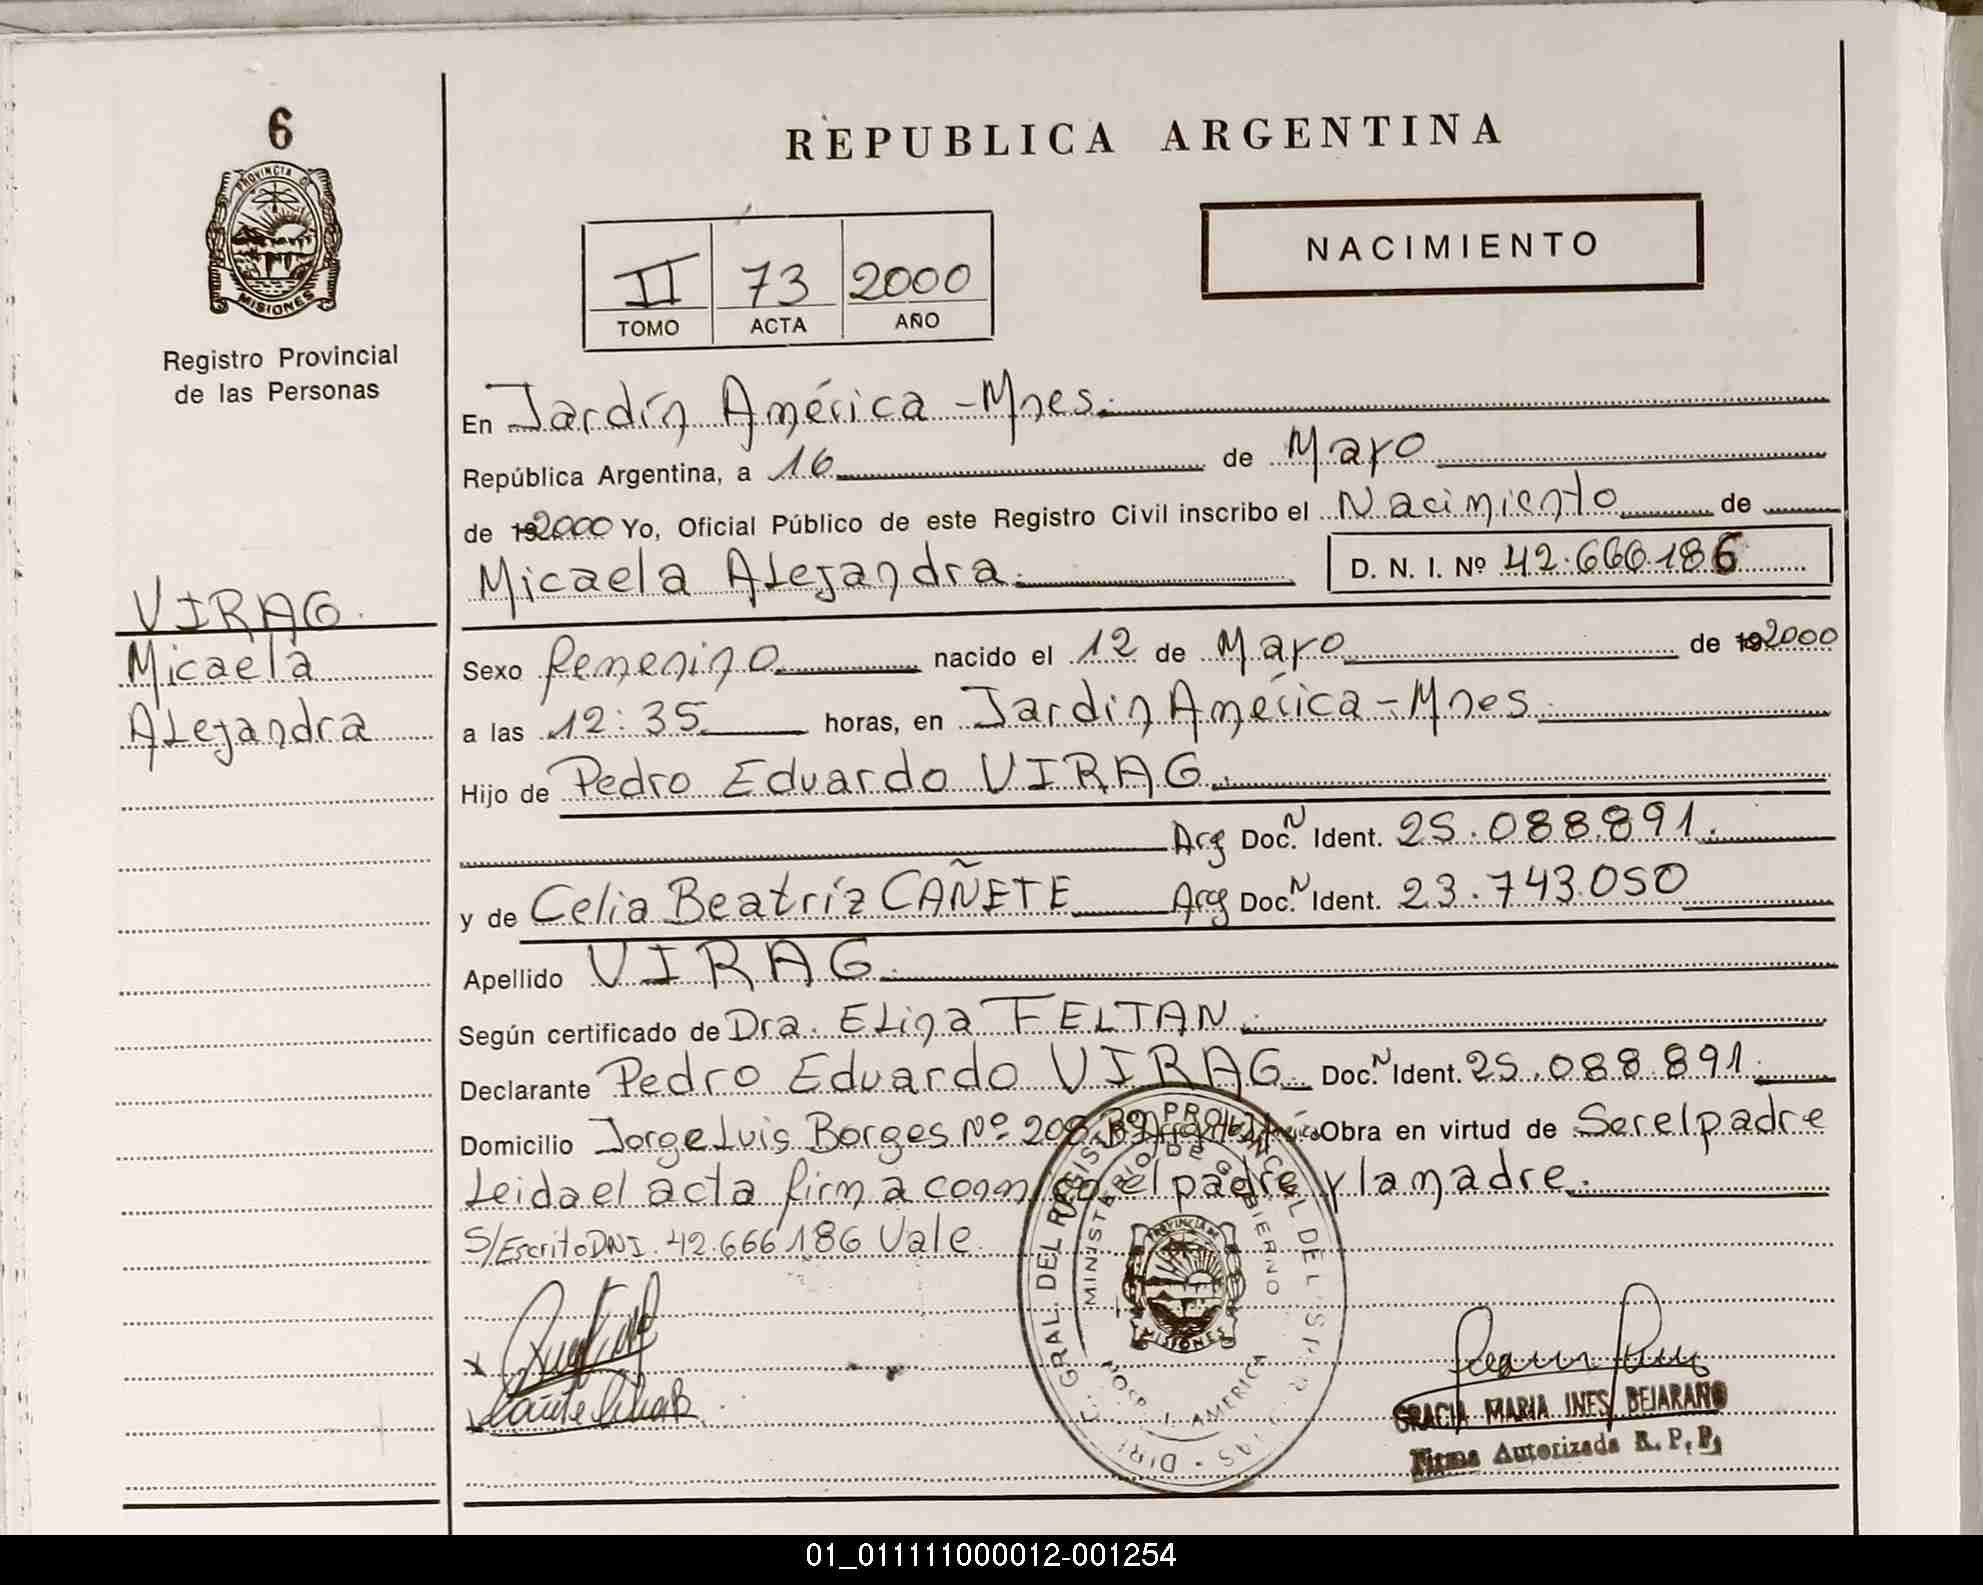 6
PROVINCIA DE
MISIONES
Registro Provincial
de las Personas
VIRAG.
Micaela
Alejandra
REPUBLICA ARGENTINA
II 73 2000
TOMO ACTA AÑO
NACIMIENTO
En Jardín América - Mnes.
República Argentina, a 16 de Mayo
de 192000 Yo, Oficial Público de este Registro Civil inscribo el Nacimiento de
Micaela Alejandra. D. N. I. Nº 42.666.186
Sexo femenino nacido el 12 de Mayo de 192000
a las 12:35 horas, en Jardín América - Mnes
Hijo de Pedro Eduardo VIRAG.
Arg Doc. N Ident. 25.088.891.
y de Celia Beatríz CAÑETE Arg Doc. N Ident. 23.743.050
Apellido VIRAG.
Según certificado de Dra. Elina FELTAN.
Declarante Pedro Eduardo VIRAG Doc. N Ident. 25.088.891.
Domicilio Jorge Luis Borges Nº 208 Obra en virtud de Ser el padre
Leida el acta firma conmigo el padre y la madre.
S/Escrito DNI. 42.666.186 Vale
MINISTERIO DE GOBIERNO
PROVINCIA DE
MISIONES
AMERICA
GRACIA MARIA INES BEJARANO
Firma Autorizada R. P. P.
01_011111000012-001254